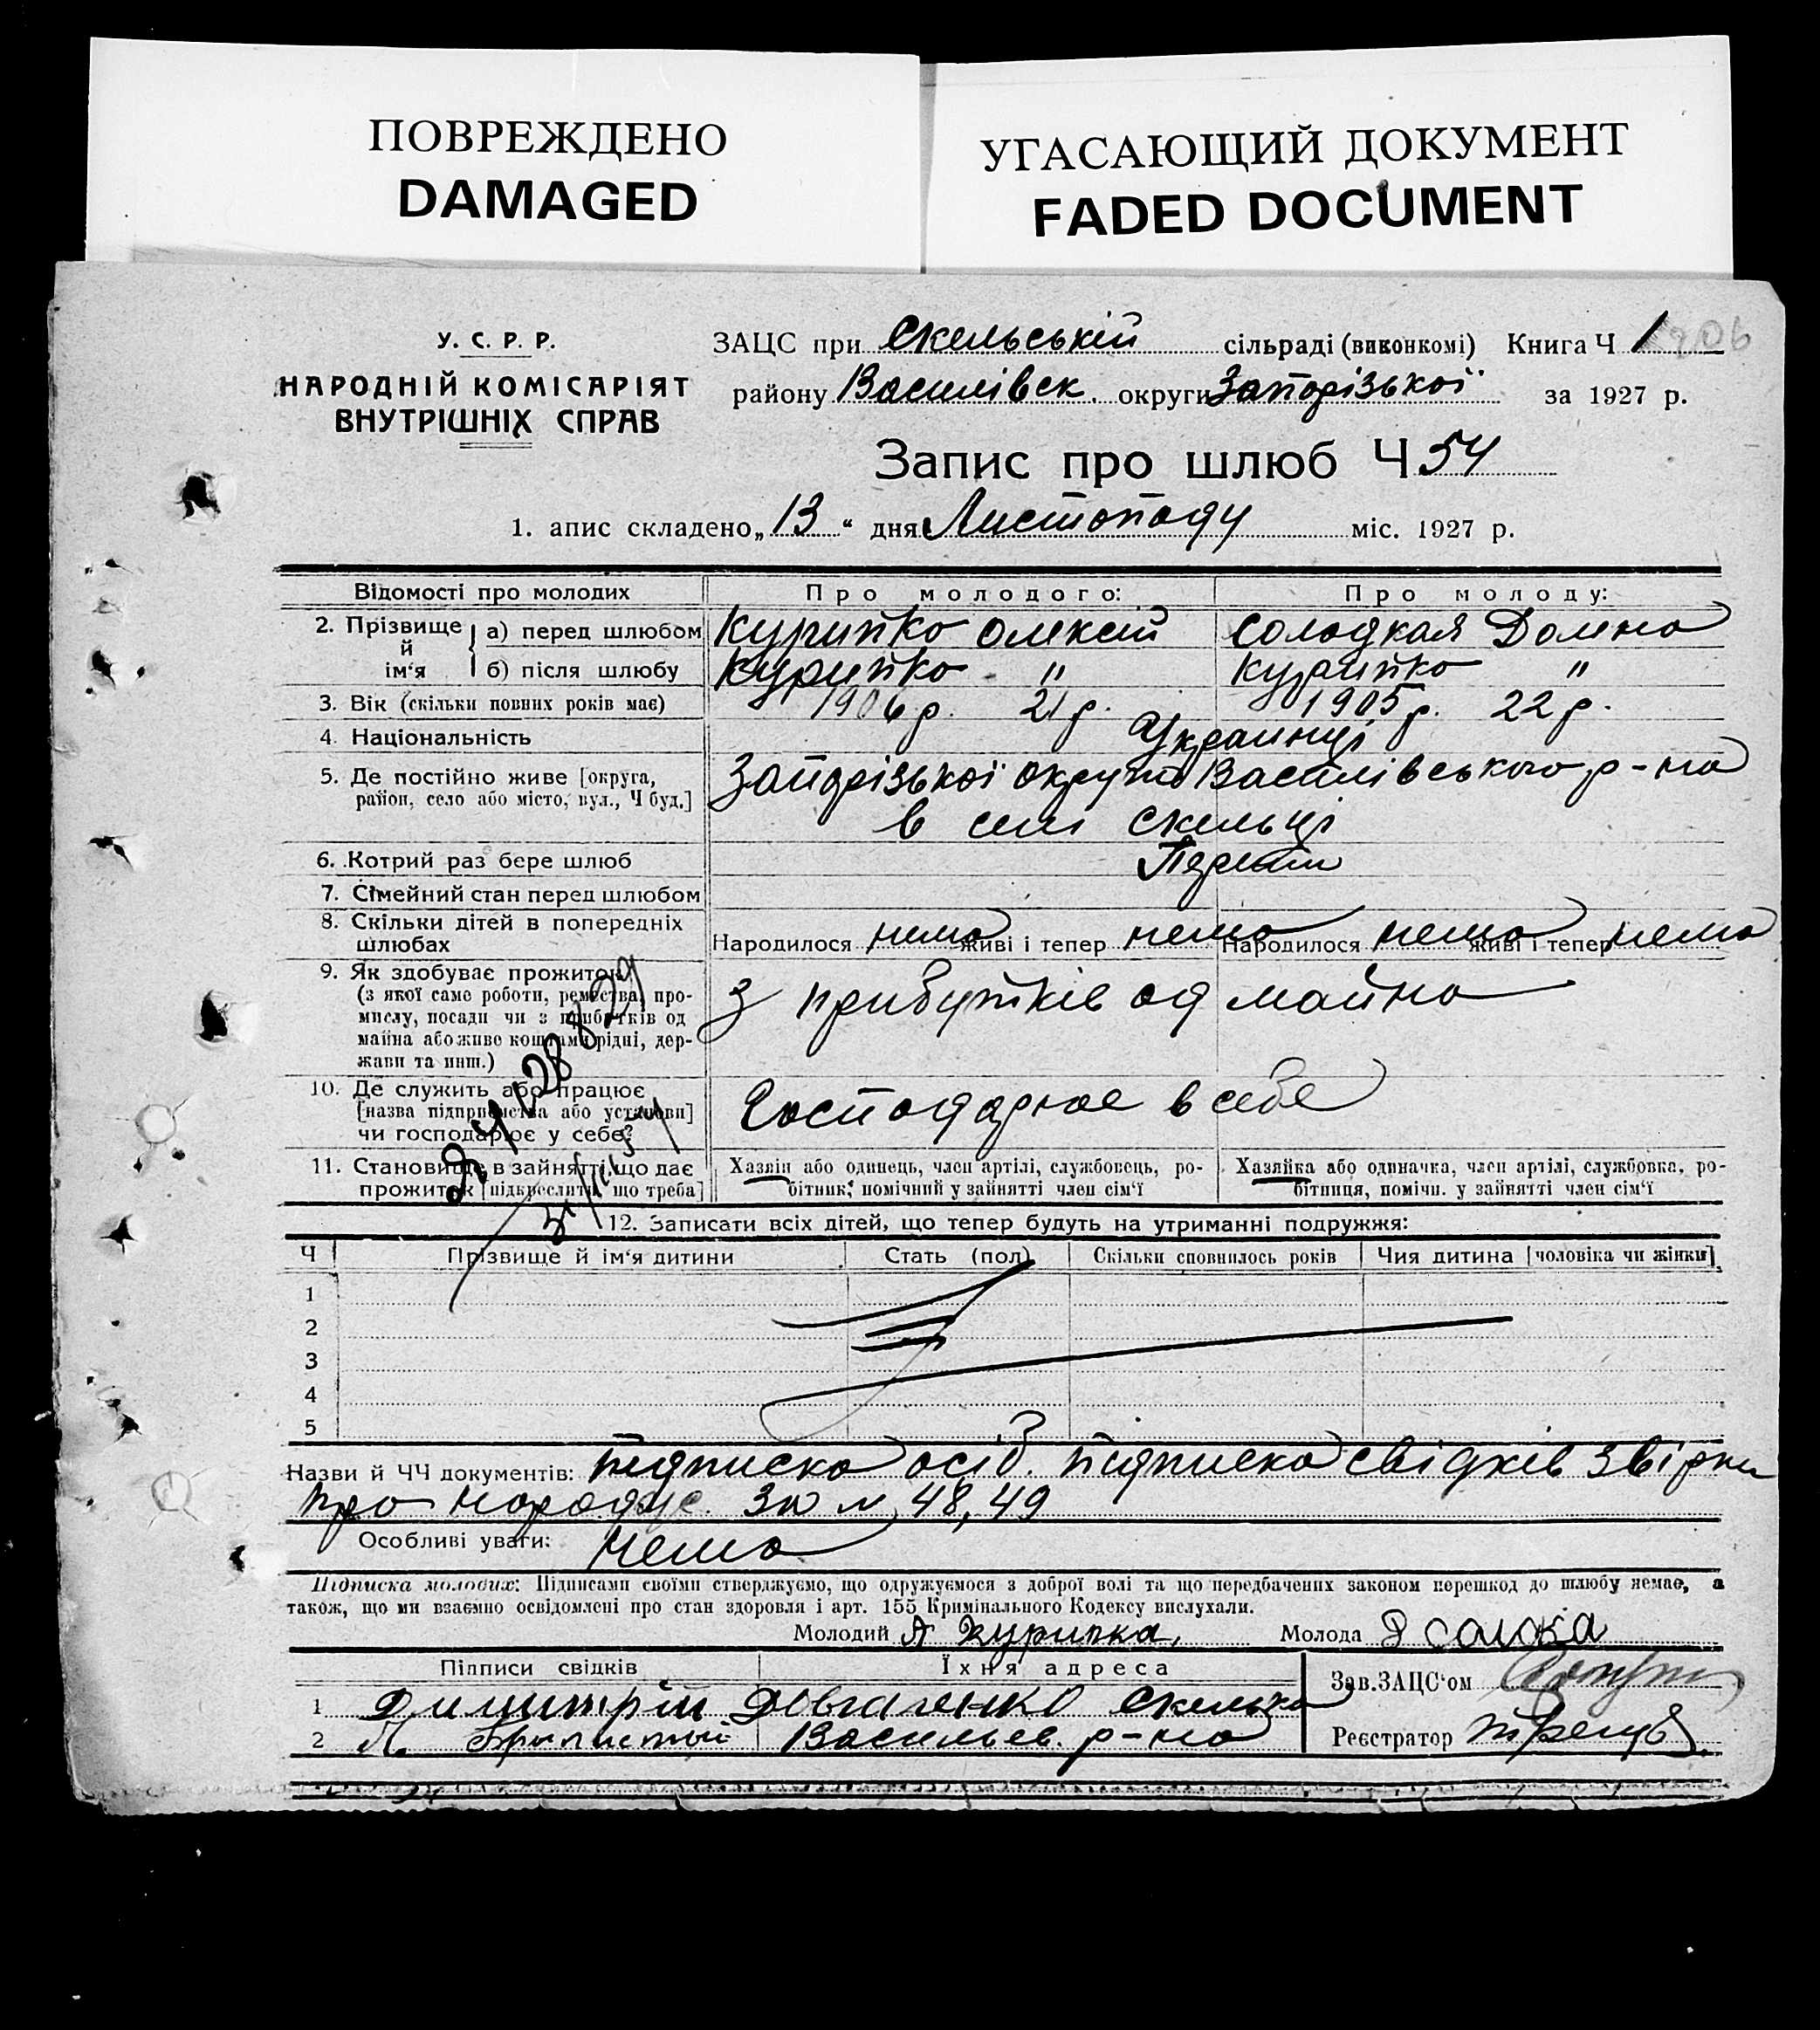 ПОВРЕЖДЕНО
DAMAGED
УГАСАЮЩИЙ ДОКУМЕНТ
FADED DOCUMENT
У. С. Р. Р.
НАРОДНІЙ КОМІСАРІЯТ
ВНУТРІШНІХ СПРАВ
ЗАЦС при Скельській сільраді (виконкомі) Книга Ч 1
району Василівск. округи Запорізької за 1927 р.
Запис про шлюб Ч 54
1. апис складено „13“ дня Листопаду міс. 1927 р.
Відомості про молодих Про молодого: Про молоду:
2. Прізвище й ім'я а) перед шлюбом Курипко Олексій Солодкая Домна
б) після шлюбу Курипко " Курипко "
3. Вік (скільки повних років має) 1906 р. 21 р. 1905 р. 22 р.
4. Національність Украинці
5. Де постійно живе [округа, Запорізької округи Василівського р-на
район, село або місто, вул., Ч буд.] в селі Скельці
6. Котрий раз бере шлюб Перший
7. Сімейний стан перед шлюбом
8. Скільки дітей в попередніх
шлюбах Народилося нема живі і тепер нема Народилося нема живі і тепер нема
9. Як здобуває прожиток
(з якої саме роботи, ремества, про-
мислу, посади чи з прибутків од
майна або живе коштами рідні, дер-
жави та инш.)
з прибутків од майна
10. Де служить або працює
[назва підприємства або установи]
чи господарює у себе?
Господарює в себе
11. Становище в зайнятті, що дає
прожиток [підкреслити, що треба]
Хазяїн або одинець, член артілі, службовець, ро-
бітник, помічний у зайнятті член сім'ї
Хазяйка або одиначка, член артілі, службовка, ро-
бітниця, помічн. у зайнятті член сім'ї
12. Записати всіх дітей, що тепер будуть на утриманні подружжя:
Ч Прізвище й ім'я дитини Стать (пол) Скільки сповнилось років Чия дитина [чоловіка чи жінки]
1
2
3
4
5
Назви й ЧЧ документів: підписка осіб. підписка свідків звірки
про народж. за № 48, 49
Особливі уваги: нема
Підписка молодих: Підписами своїми стверджуємо, що одружуємося з доброї волі та що передбачених законом перешкод до шлюбу немає, а
також, що ми взаємно освідомлені про стан здоровля і арт. 155 Кримінального Кодексу вислухали.
Молодий А Курипка, Молода Д солока
Підписи свідків Їхня адреса
Зав. ЗАЦС'ом
1 Димитрій Довгаченко Скелька
2 Василев. р-на
Реєстратор